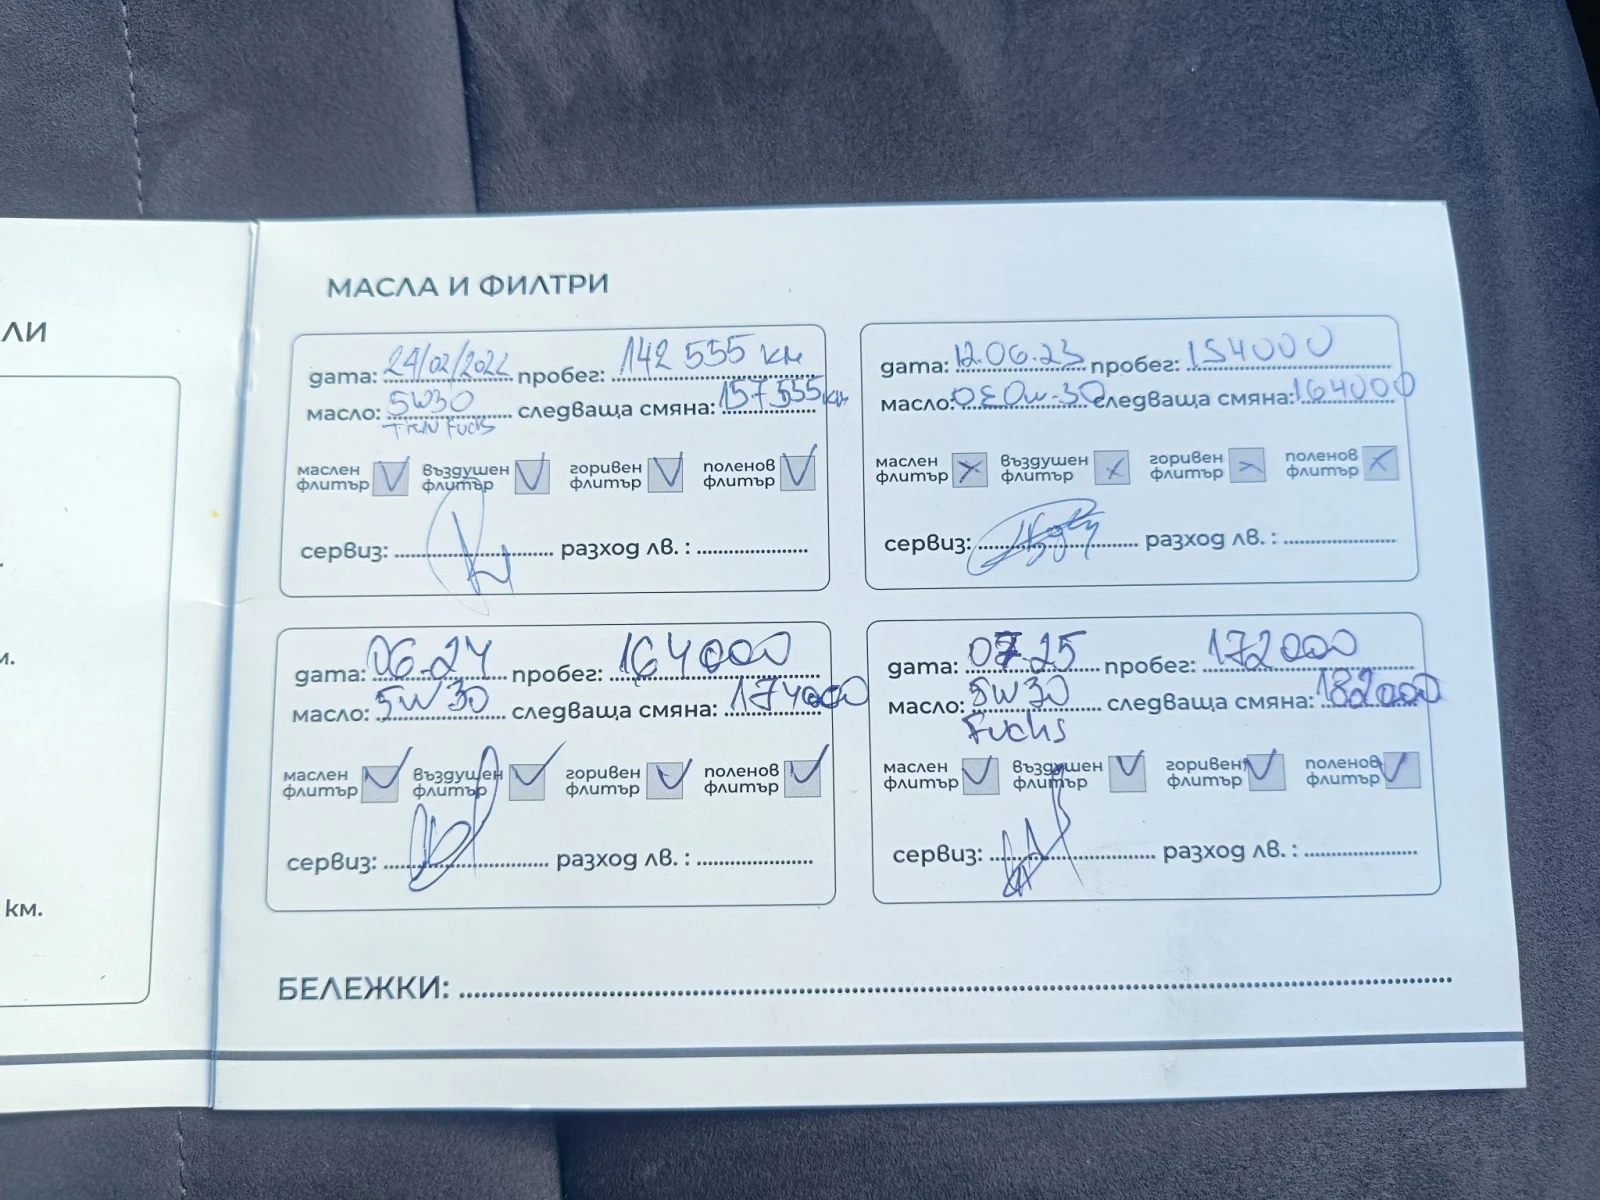 ЛИ
м.
км.
МАСЛА И ФИЛТРИ
дата: 24/02/2022 пробег: 142 555 км
масло: 5W30 следваща смяна: 157 555 км
Fuchs
маслен флитър въздушен флитър горивен флитър поленов флитър
сервиз: разход лв. :
дата: 12.06.23 пробег: 154000
масло: 0W-30 следваща смяна: 164000
маслен флитър въздушен флитър горивен флитър поленов флитър
сервиз: разход лв. :
дата: 06.24 пробег: 164000
масло: 5W30 следваща смяна: 174000
маслен флитър въздушен флитър горивен флитър поленов флитър
сервиз: разход лв. :
дата: 07.25 пробег: 172000
масло: 5W30 следваща смяна: 182000
Fuchs
маслен флитър въздушен флитър горивен флитър поленов флитър
сервиз: разход лв. :
БЕЛЕЖКИ: